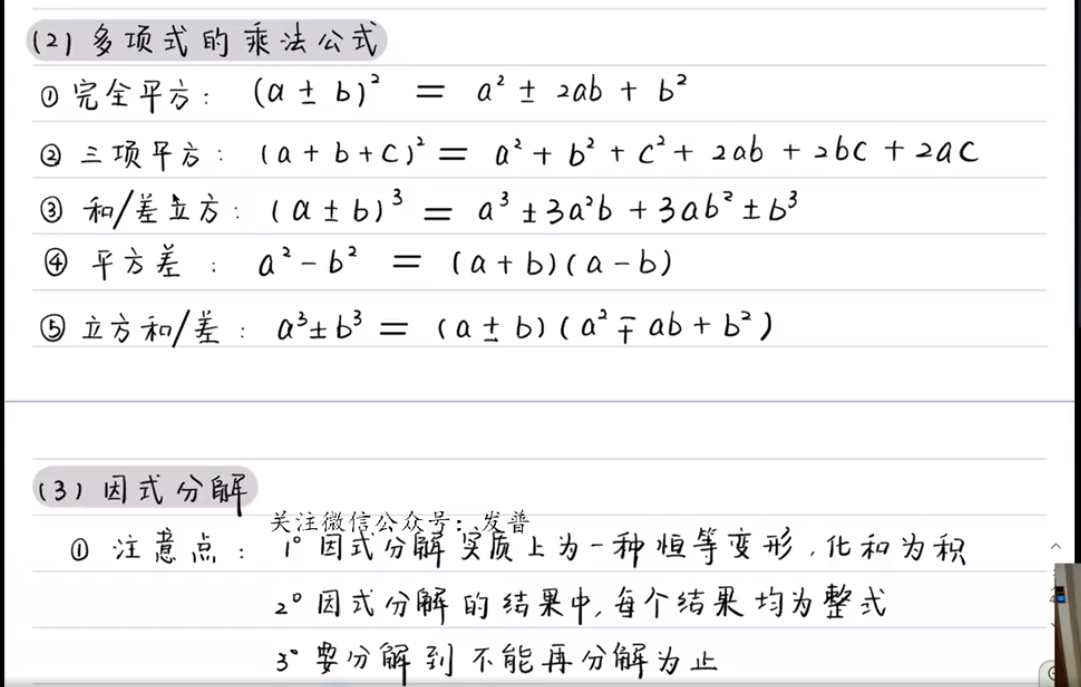 (2) 多项式的乘法公式
① 完全平方: (a ± b)² = a² ± 2ab + b²
② 三项平方: (a + b + c)² = a² + b² + c² + 2ab + 2bc + 2ac
③ 和/差立方: (a ± b)³ = a³ ± 3a²b + 3ab² ± b³
④ 平方差: a² - b² = (a + b)(a - b)
⑤ 立方和/差: a³ ± b³ = (a ± b)(a² ∓ ab + b²)
(3) 因式分解
关注微信公众号：发普
① 注意点: 1° 因式分解实质上为一种恒等变形, 化和为积
2° 因式分解的结果中, 每个结果均为整式
3° 要分解到不能再分解为止